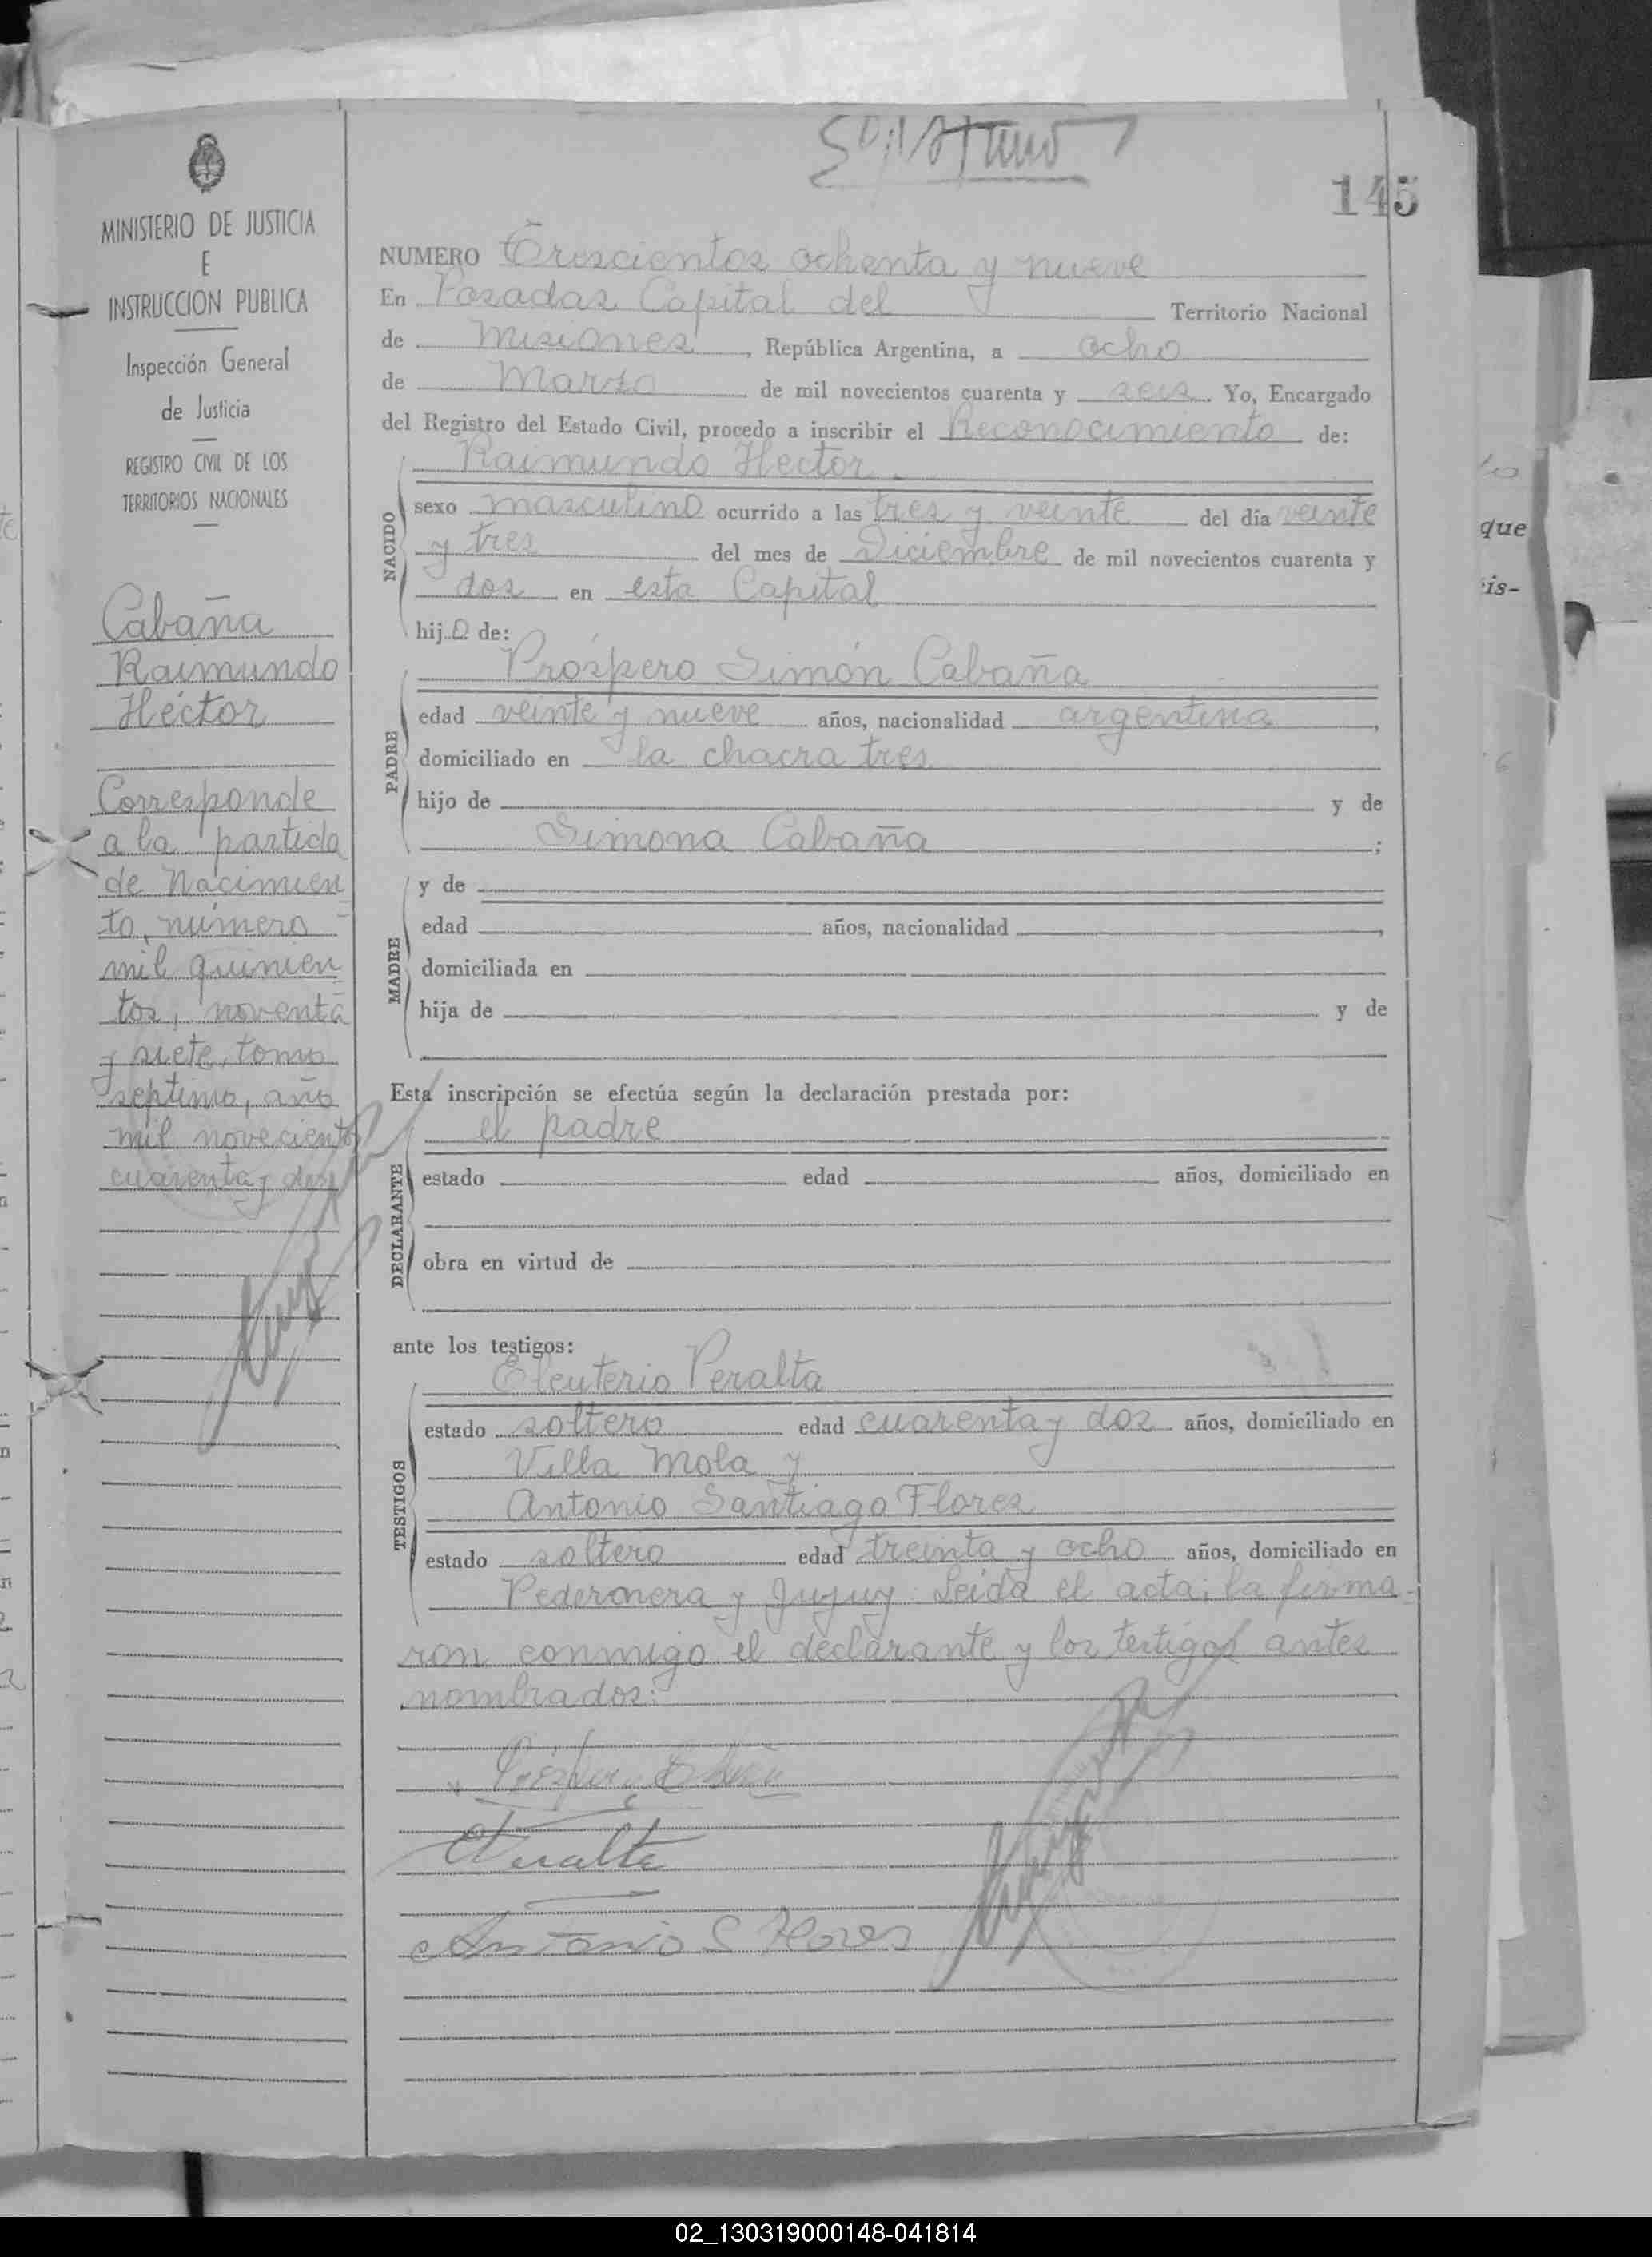 145
MINISTERIO DE JUSTICIA
E
INSTRUCCION PUBLICA
Inspección General
de Justicia
REGISTRO CIVIL DE LOS
TERRITORIOS NACIONALES
Cabaña
Raimundo
Héctor
Corresponde
a la partida
de Nacimien
to, número
mil quinien
tos, noventa
y siete, tomo
septimo, año
mil novecientos
cuarenta y dos
NUMERO Trescientos ochenta y nueve
En Posadas Capital del Territorio Nacional
de Misiones, República Argentina, a ocho
de Marzo de mil novecientos cuarenta y seis. Yo, Encargado
del Registro del Estado Civil, procedo a inscribir el Reconocimiento de:
NACIDO
Raimundo Hector
sexo masculino ocurrido a las tres y veinte del día veinte
y tres del mes de Diciembre de mil novecientos cuarenta y
dos en esta Capital
hijo de:
PADRE
Próspero Simón Cabaña
edad veinte y nueve años, nacionalidad argentina,
domiciliado en la chacra tres
hijo de y de
Simona Cabaña;
MADRE
y de
edad años, nacionalidad,
domiciliada en
hija de y de
Esta inscripción se efectúa según la declaración prestada por:
DECLARANTE
el padre
estado edad años, domiciliado en
obra en virtud de
ante los testigos:
TESTIGOS
Eleuterio Peralta
estado soltero edad cuarenta y dos años, domiciliado en
Villa Mola y
Antonio Santiago Flores
estado soltero edad treinta y ocho años, domiciliado en
Pedernera y Jujuy. Leída el acta, la firma-
ron conmigo el declarante y los testigos antes
nombrados:
EPeralta
Antonio S Flores
que
is-
02_130319000148-041814